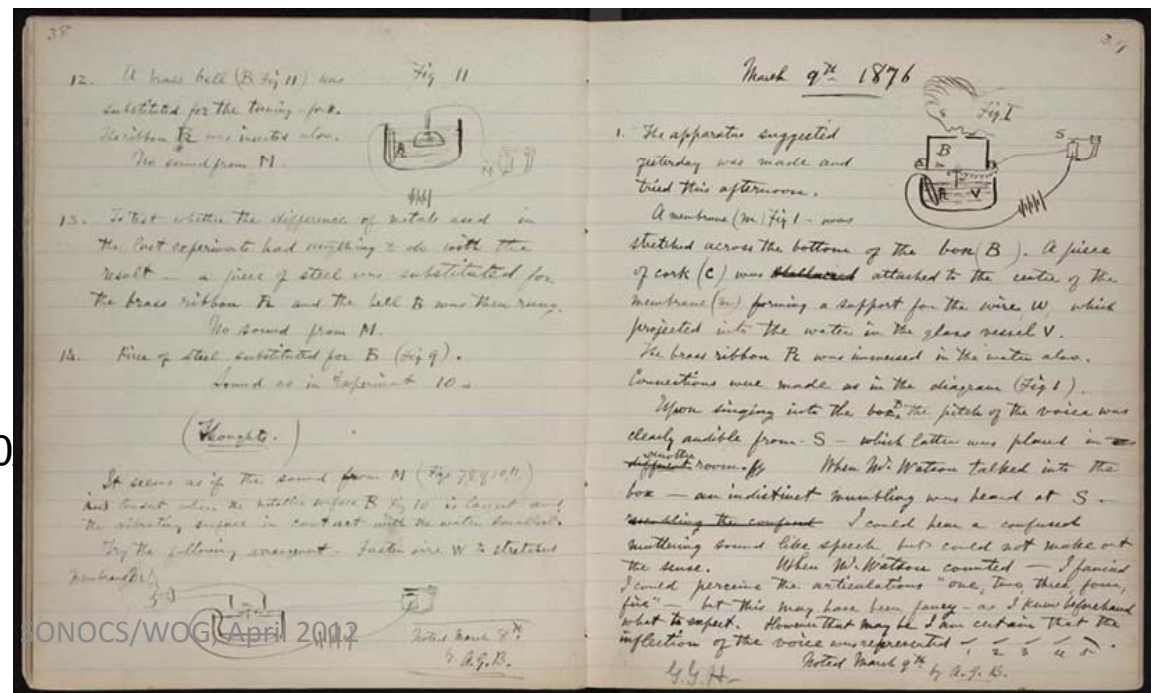 38
12. A brass bell (B Fig 11) was
substituted for the tuning-fork.
The ribbon R was inserted also.
No sound from M.
Fig 11
R
M
13. To test whether the difference of metals used in
the last experiment had anything to do with the
result — a piece of steel was substituted for
the brass ribbon R and the bell B was then rung.
No sound from M.
14. Piece of steel substituted for B (Fig 9).
Sound as in Experiment 10.
(Thoughts.)
It seems as if the sound from M (Figs 7,8,9,10,11.)
loudest when the metallic surface B Fig 10 is largest and
the vibrating surface in contact with the water smallest.
Try the following arrangement. Fasten wire W to stretched
membrane
Noted March 8th
by A.G.B.
SONOCS/WOG/April 2012
0
39
March 9th 1876
Fig. 1
S
B
m
R
V
1. The apparatus suggested
yesterday was made and
tried this afternoon.
A membrane (m) Fig 1 - was
stretched across the bottom of the box (B). A piece
of cork (C) was attached to the centre of the
membrane (m) forming a support for the wire W, which
projected into the water in the glass vessel V.
The brass ribbon R was immersed in the water also.
Connections were made as in the diagram (Fig 1).
Upon singing into the box, the pitch of the voice was
clearly audible from - S - which latter was placed in
another
different room. When Mr. Watson talked into the
box — an indistinct mumbling was heard at S.
resembling the confused I could hear a confused
muttering sound like speech but could not make out
the sense. When Mr. Watson counted — I fancied
I could perceive the articulations "one, two, three, four,
five" — but this may have been fancy - as I knew beforehand
what to expect. However that may be I am certain that the
inflection of the voice was represented
1 2 3 4 5.
Noted March 9th by A.G.B.
G.G.H.